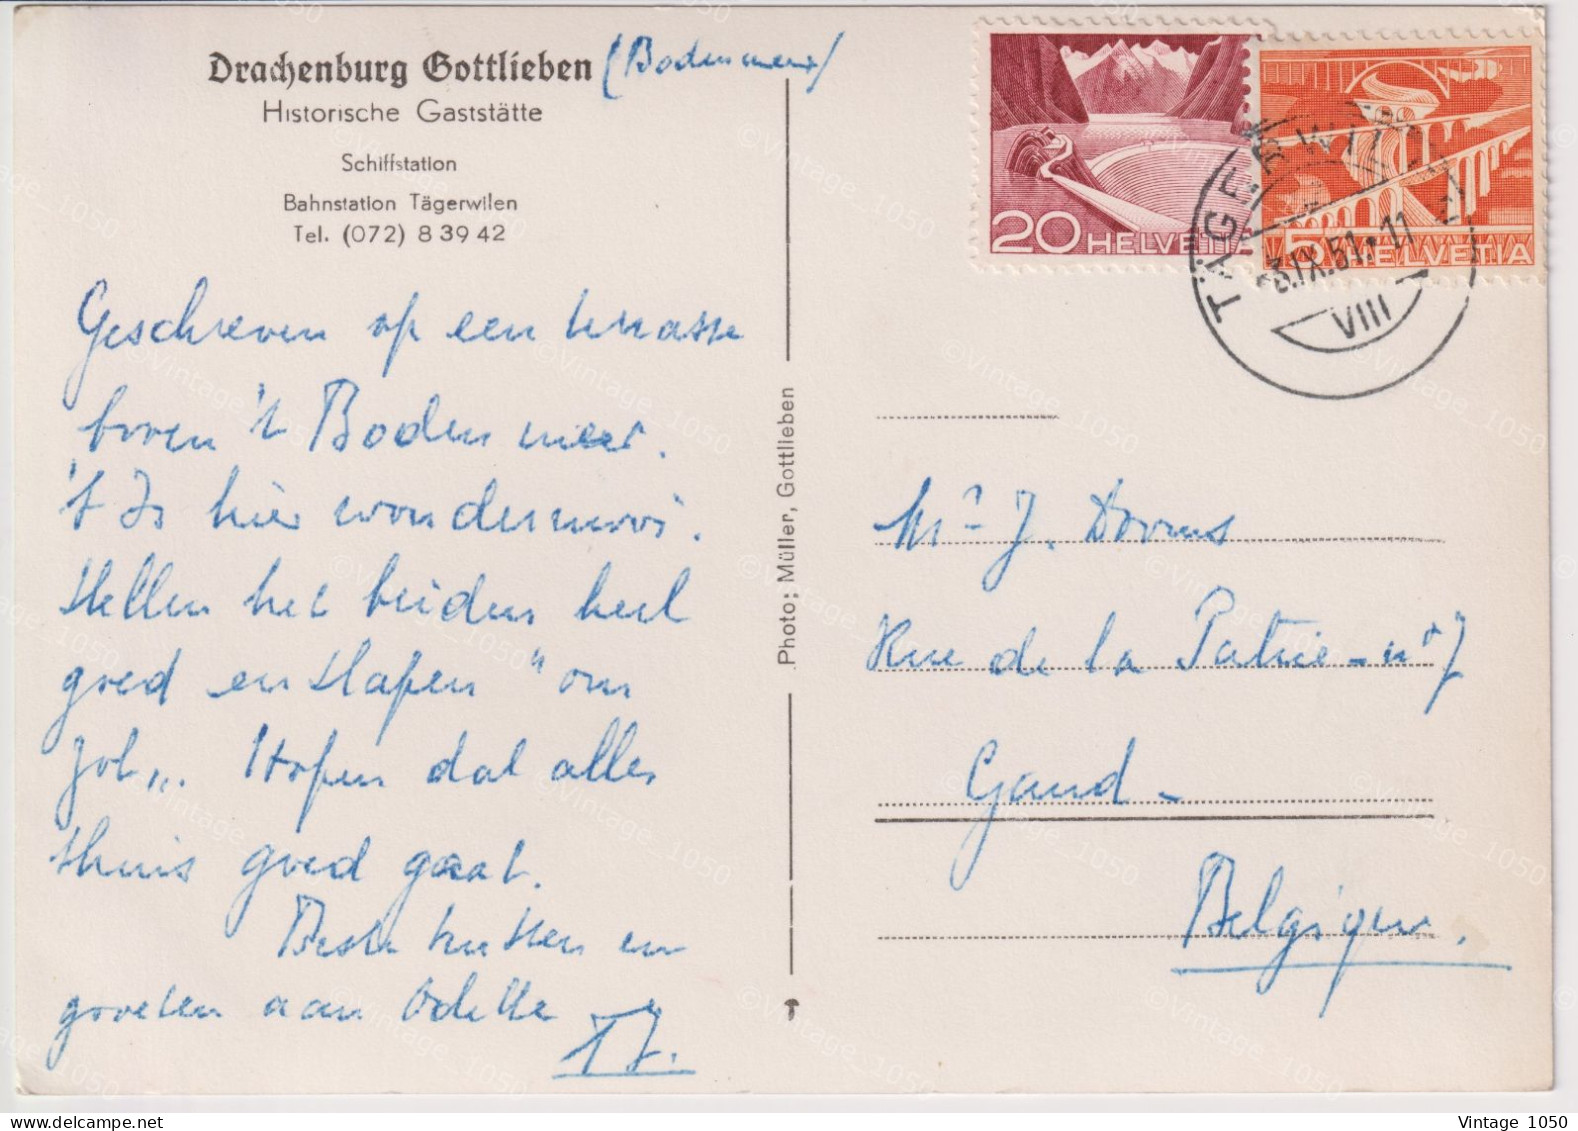 Drachenburg Gottlieben (Bodenmeer)
Historische Gaststätte
Schiffstation
Bahnstation Tägerwilen
Tel. (072) 8 39 42
Geschreven op een terrasse
boven 't Bodenmeer.
't Is hier wondermooi.
Stellen het beiden heel
goed en slapen "om
zot„. Hopen dat alles
thuis goed gaat.
Beste kussen en
groeten aan Odette
Photo: Müller, Gottlieben
20 HELVETIA
5 HELVETIA
TÄGERWILEN
3.IX.51.-11
VIII
Mr J. Dorms
Rue de la Patrie - n° 7
Gand -
Belgique.
©Vintage_1050
Vintage 1050